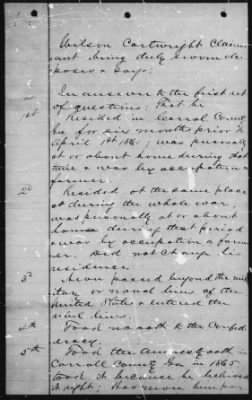 Wilson Cartwright Claim
ant being duly sworn de
poses & says:
In answer to the first set
of questions: That he
1st Resided in Carroll County
Ga for six months prior to
April 1st 1861; was personally
at or about home during that
time & was by occupation a
farmer.
2d Resided at the same place
during the whole war,
was personally at or about
home during that period
& was by occupation a farm
er. Did not change his
residence.
3d Never passed beyond the mili
tary or naval lines of the
United States & entered the
rebel lines.
4th Took no oath to the Confed
eracy.
5th Took the Amnesty oath in
Carroll County Ga in 1865
took it because he believed
it right;